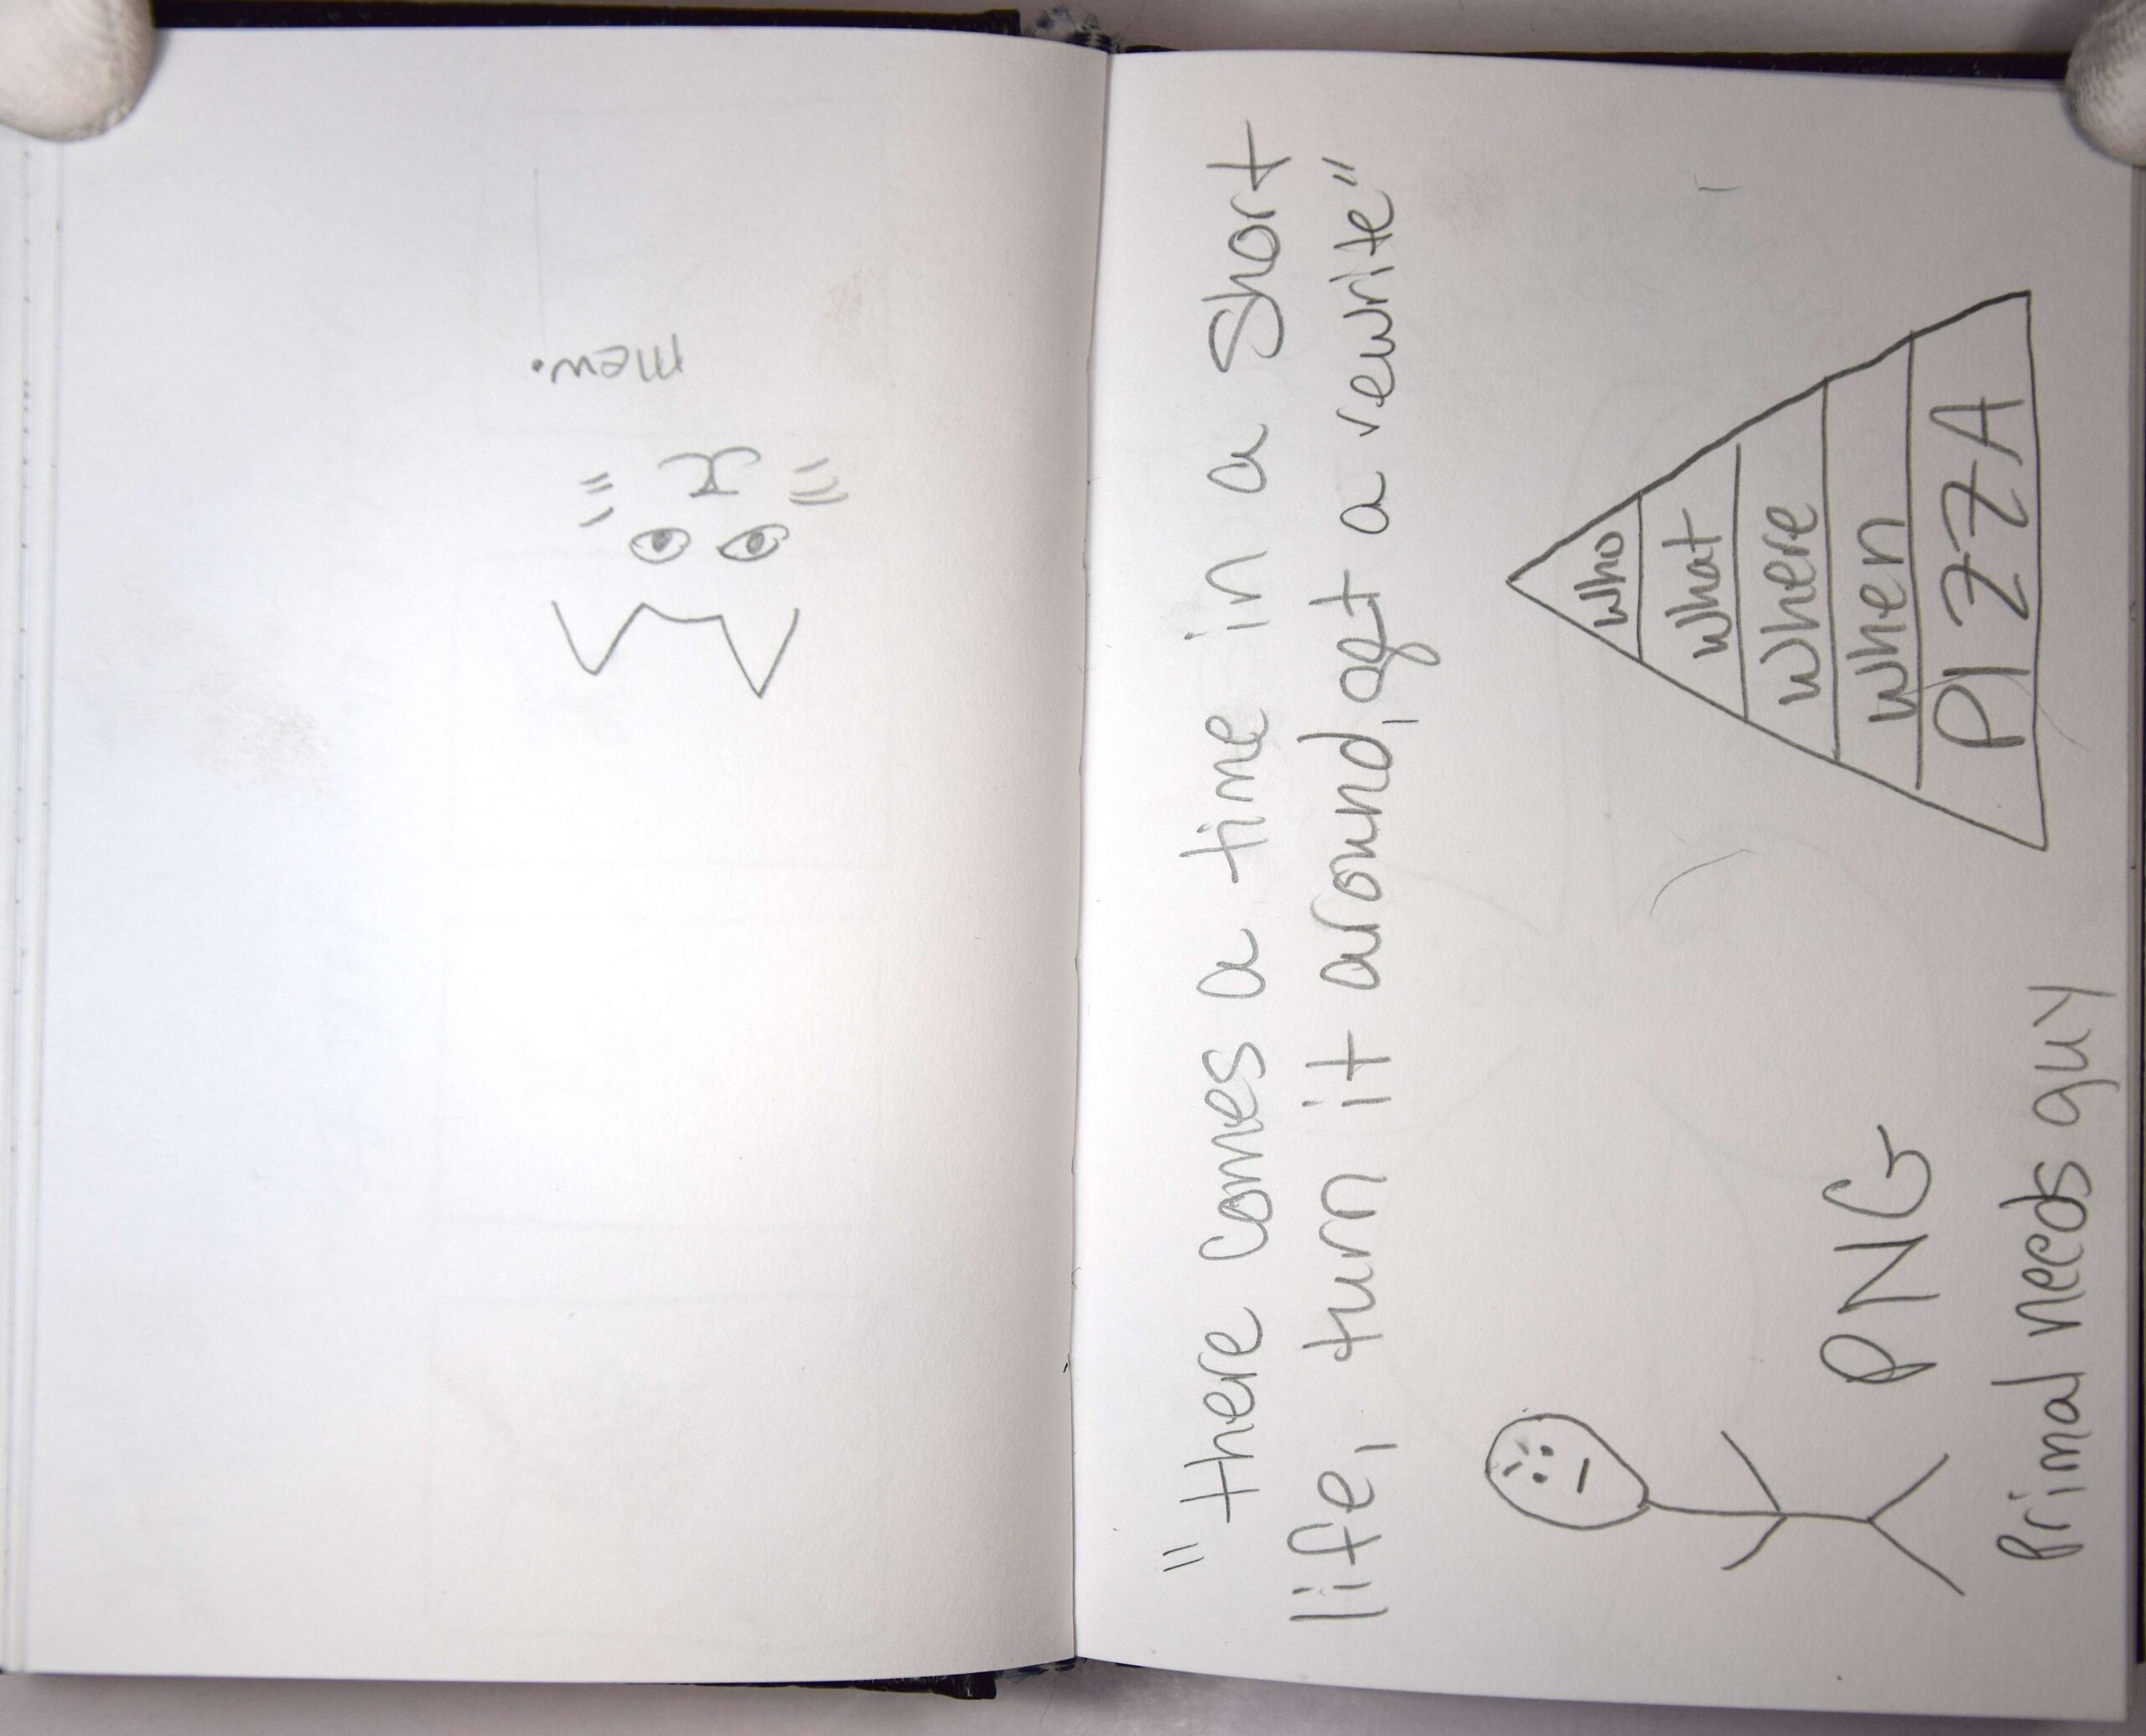 mew.
"there comes a time in a short
life, turn it around, get a rewrite"
who
what
where
when
PIZZA
PNG
Primal needs guy